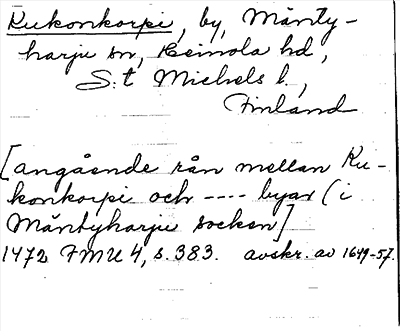 Kukonkorpi, by, Mänty-
harju sn, Heinola hd,
S:t Michels l.,
Finland
[angående rån mellan Ku-
konkorpi och ---- byar (i
Mäntyharju socken]
1472 FMU 4, s. 383. avskr. av 1649-57.